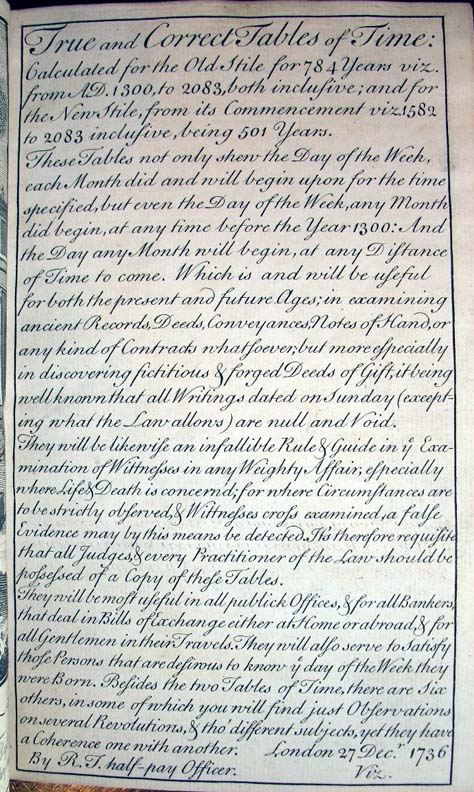 True and Correct Tables of Time:
Calculated for the Old Stile for 784 Years viz.
from A.D. 1300, to 2083, both inclusive; and for
the New Stile, from its Commencement viz. 1582
to 2083 inclusive, being 501 Years.
These Tables not only shew the Day of the Week,
each Month did and will begin upon for the time
specified, but even the Day of the Week, any Month
did begin, at any time before the Year 1300: And
the Day any Month will begin, at any Distance
of Time to come. Which is and will be useful
for both the present and future Ages; in examining
ancient Records, Deeds, Conveyances, Notes of Hand, or
any kind of Contracts whatsoever; but more especially
in discovering fictitious & forged Deeds of Gift, it being
well known that all Writings dated on Sunday (except-
ing what the Law allows) are null and Void.
They will be likewise an infallible Rule & Guide in yͤ Exa-
mination of Wittnesses in any Weighty Affair, especially
where Life & Death is concernd; for where Circumstances are
to be strictly observed, & Wittnesses cross examined, a false
Evidence may by this means be detected. It's therefore requisite
that all Judges, & every Practitioner of the Law should be
possessed of a Copy of these Tables.
They will be most useful in all publick Offices, & for all Bankers,
that deal in Bills of Exchange either at Home or abroad, & for
all Gentlemen in their Travels. They will also serve to Satisfy
those Persons that are desirous to know yͤ day of the Week they
were Born. Besides the two Tables of Time, there are Six
others, in some of which you will find just Observations
on several Revolutions, & tho' different subjects, yet they have
a Coherence one with another. London 27 Dec.ʳ 1736
By R. T. half-pay Officer. Viz.